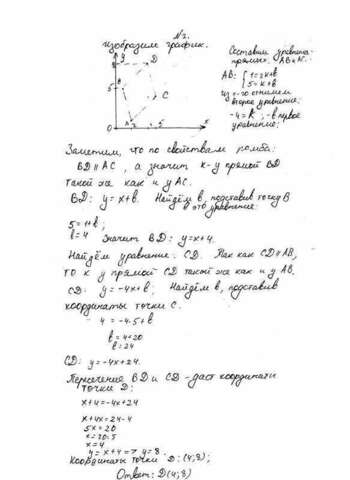 №2.
изобразим график.
y
D
B
C
A
0
5
x
Составим уравнения
прямых: AB и AC.
AB: { 1=2k+b
5=k+b
из 1-го отнимем
второе уравнение:
-4=k; -в первое
уравнение;
Заметим, что по свойствам ромба:
BD∥AC, а значит k-у прямой BD
такой же как и у AC.
BD: y=x+b. Найдём b, подставив точку B
в это уравнение:
5=1+b;
b=4
Значит BD: y=x+4.
Найдём уравнение: CD. Так как CD∥AB,
то k у прямой CD такой же как и у AB.
CD: y=-4x+b; Найдём b, подставив
координаты точки C.
4=-4·5+b
b=4+20
b=24
CD: y=-4x+24.
Пересечение BD и CD - даст координаты
точки D:
x+4=-4x+24
x+4x=24-4
5x=20
x=20:5
x=4
y=x+4=> y=8.
Координаты точки D:(4;8);
Ответ: D(4;8)